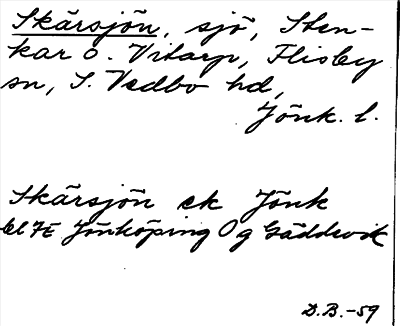 Skärsjön, sjö, Sten-
kar o. Vitarp, Flisby
sn, S. Vedbo hd,
Jönk. l.
Skärsjön ek Jönk
bl 7E Jönköping Og Gäddevik
D.B.-59